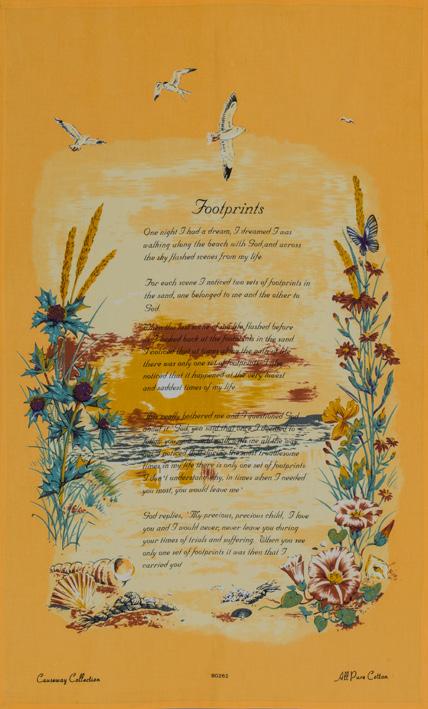 Footprints
One night I had a dream, I dreamed I was
walking along the beach with God, and across
the sky flashed scenes from my life
For each scene I noticed two sets of footprints in
the sand, one belonged to me and the other to
God.
When the last scene of my life flashed before
me I looked back at the footprints in the sand
I noticed that at times along the path of life
there was only one set of footprints. I also
noticed that it happened at the very lowest
and saddest times of my life
This really bothered me and I questioned God
about it. God, you said that once I decided to
follow you, you would walk with me all the way
but I noticed that during the most troublesome
times in my life there is only one set of footprints
I don't understand why, in times when I needed
you most, you would leave me"
God replies, "My precious, precious child, I love
you and I would never, never leave you during
your times of trials and suffering. When you see
only one set of footprints it was then that I
carried you
Causeway Collection
BG262
All Pure Cotton